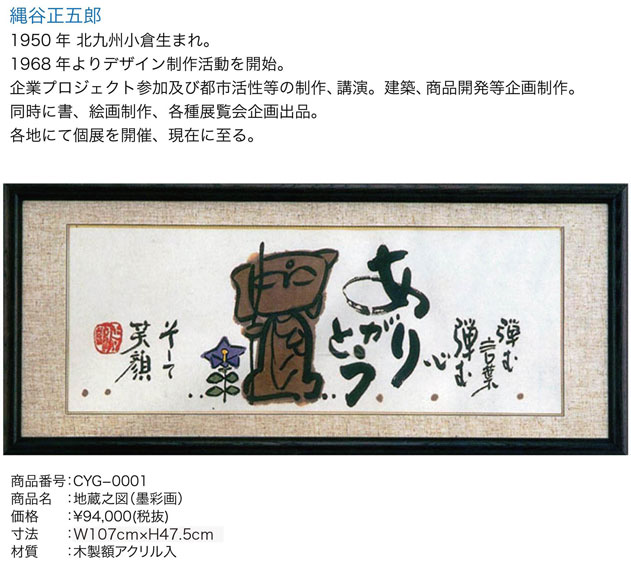 縄谷正五郎
1950年 北九州小倉生まれ。
1968年よりデザイン制作活動を開始。
企業プロジェクト参加及び都市活性等の制作、講演。建築、商品開発等企画制作。
同時に書、絵画制作、各種展覧会企画出品。
各地にて個展を開催、現在に至る。
弾む
言葉
弾む
心
ありがとう
そして
笑顔
商品番号:CYG−0001
商品名　:地蔵之図(墨彩画)
価格　　:¥94,000(税抜)
寸法　　:W107cm×H47.5cm
材質　　:木製額アクリル入